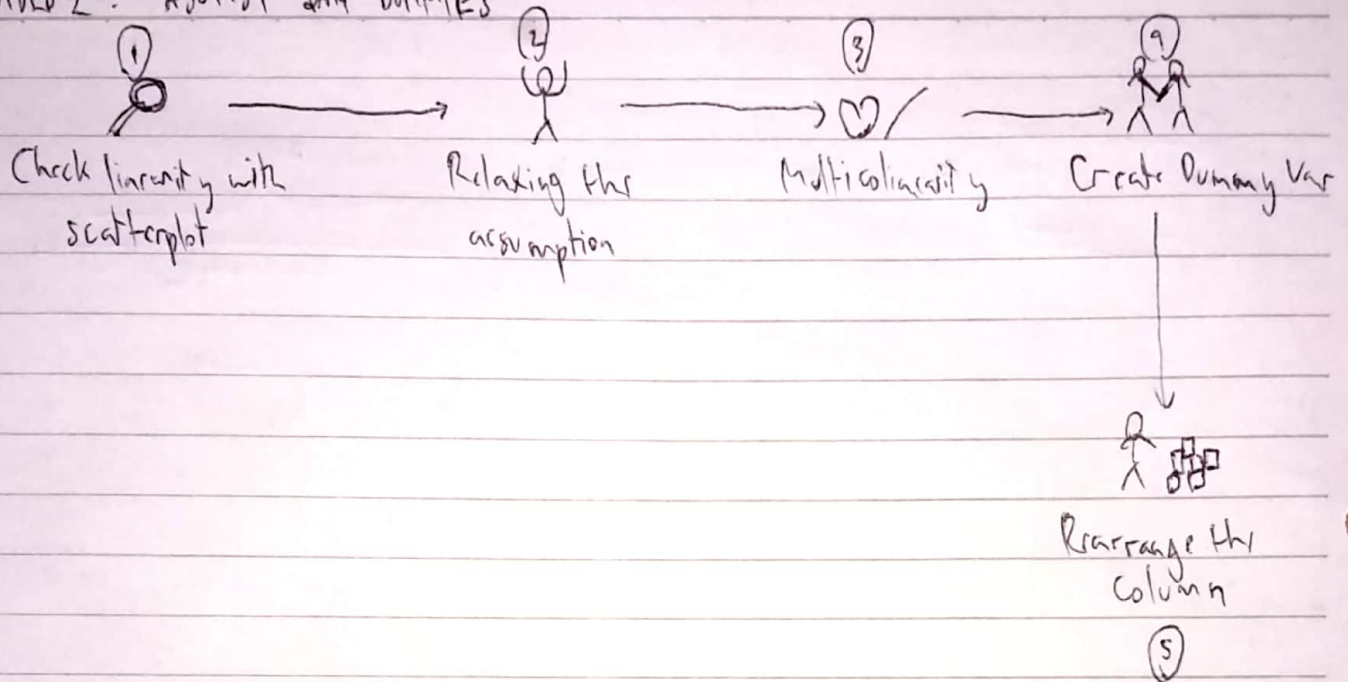 1
2
3
4
Check linearity with
scatterplot
Relaxing the
assumption
Multicolinearity
Create Dummy Var
Rearrange the
Column
5